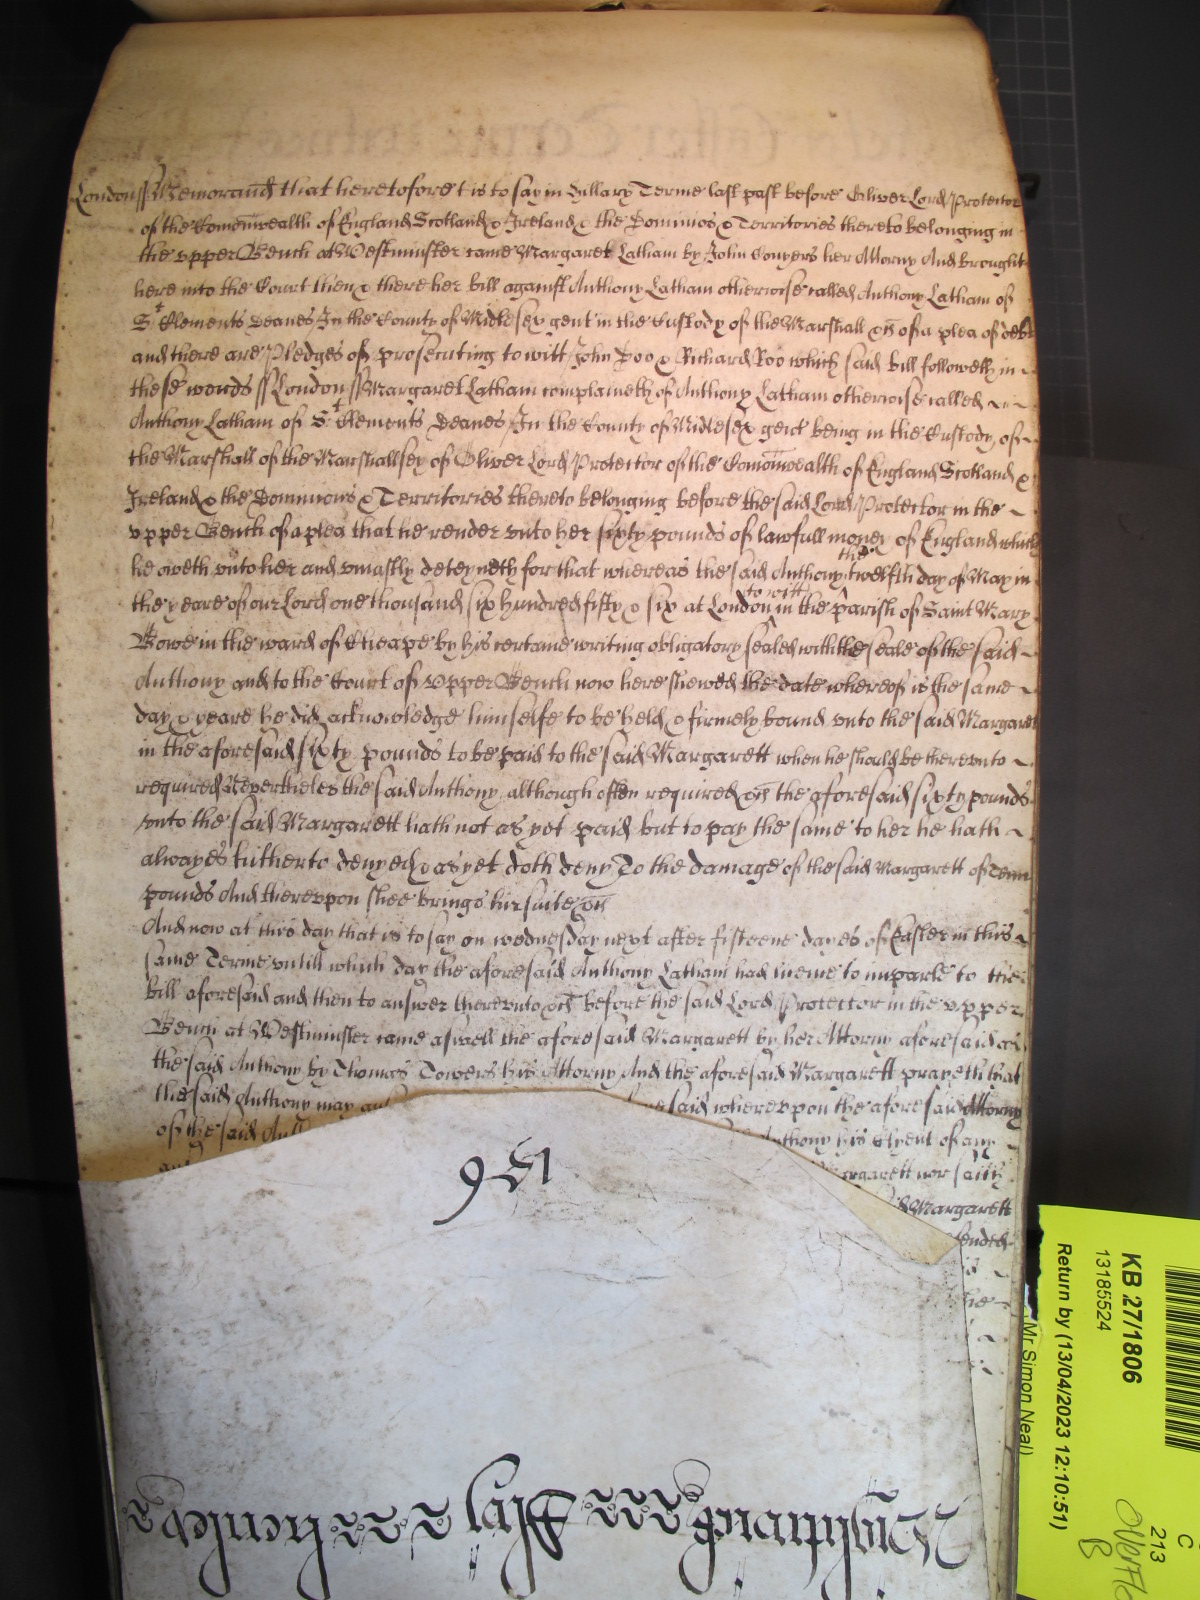 London ss Memorand that heretofore t is to say in Hillary Terme last past before Oliver Lord Protector
of the Comonwealth of England Scotland & Ireland & the Dominios & Territories thereto belonging in
the vpper Bench at Westminster came Margaret Latham by John Conyers her Attorny And brought
here into the Court then & there her bill against Anthony Latham otherwise called Anthony Latham of
St Clements Deanes In the County of Midlesex gent in the Custody of the Marshall &c of a plea of debt
and there are Pledges of prosecuting to witt John Doo & Richard Roo which said bill followeth in
these words ss London ss Margaret Latham complaineth of Anthony Latham otherwise called
Anthony Latham of St Clements Deanes In the County of Midlesex gent being in the Custody of
the Marshall of the Marshallsey of Oliver Lord Protector of the Comonwealth of England Scotland &
Ireland & the Dominions & Territories thereto belonging before the said Lord Protector in the
vpper Bench of a plea that he render vnto her sixty pounds of lawfull money of England which
he oweth vnto her and vniustly deteyneth for that whereas the said Anthony the twelfth day of May in
the yeare of our Lord one thousand six hundred fifty & six at London to witt in the parish of Saint Mary
Bowe in the ward of Cheape by his certaine writing obligatory sealed with the seale of the said
Anthony and to the Court of vpper Bench now here shewed the date whereof is the same
day & yeare he did acknowledge himselfe to be held & firmely bound vnto the said Margarett
in the aforesaid sixty pounds to be paid to the said Margarett when he should be therevnto
required Nevertheles the said Anthony although often required &c the aforesaid sixty pounds
vnto the said Margarett hath not as yet paid but to pay the same to her he hath
alwayes hitherto denyed & as yet doth deny To the damage of the said Margarett of Tenn
pounds And therevpon shee brings her suite &c
And now at this day that is to say on wednesday next after fifteene dayes of Easter in this
same Terme vntill which day the aforesaid Anthony Latham had licence to imparle to the
bill aforesaid and then to answer therevnto &c before the said Lord Protector in the vpper
Bench at Westminster came aswell the aforesaid Margarett by her Attorny aforesaid as
the said Anthony by Thomas Towers his Attorny And the aforesaid Margarett prayeth that
the said Anthony may said wherevpon the aforesaid Attorny
of the said Anthony his Clyent of any
Margarett nor saith
Margarett
951
KB 27/1806
13185524
Return by (13/04/2023 12:10:51)
Mr Simon Neal)
C
213